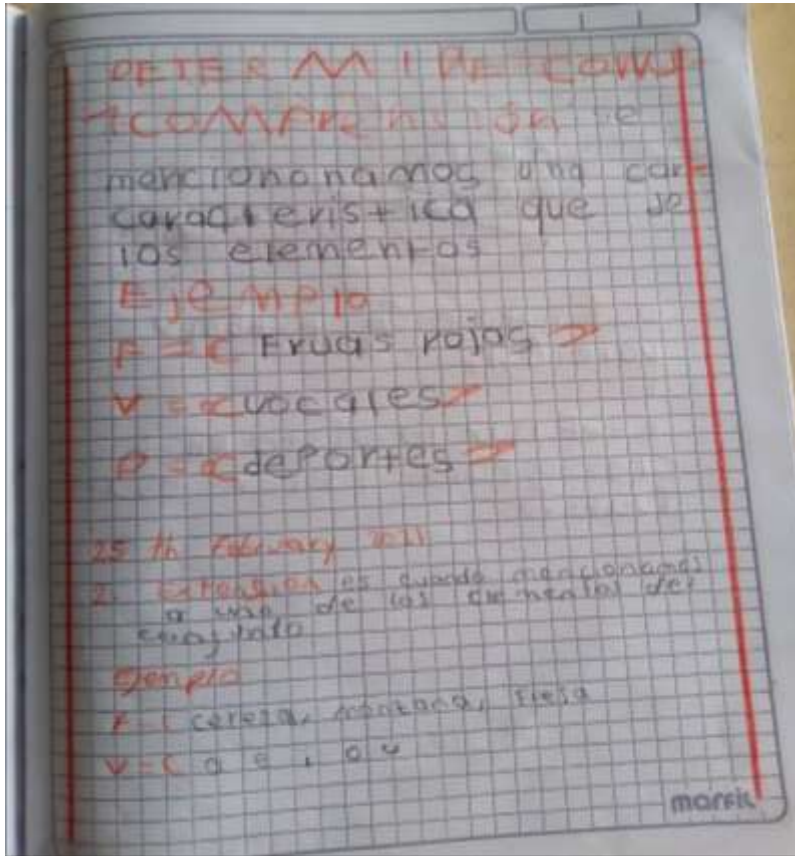 DETERMINE CONJ
1 COMPrensión e
menciononamos una car-
caracteristica que se
los elementos
EjeMPlo
F = < Fruas rojas >
V = < vocales >
D = < dePortes >
25 th February
2. Extension es cuando mencionamos
a uno de los elementos del
conjunto
Ejemplo
F = < cereza, manzana, fresa
V = < a e i o u